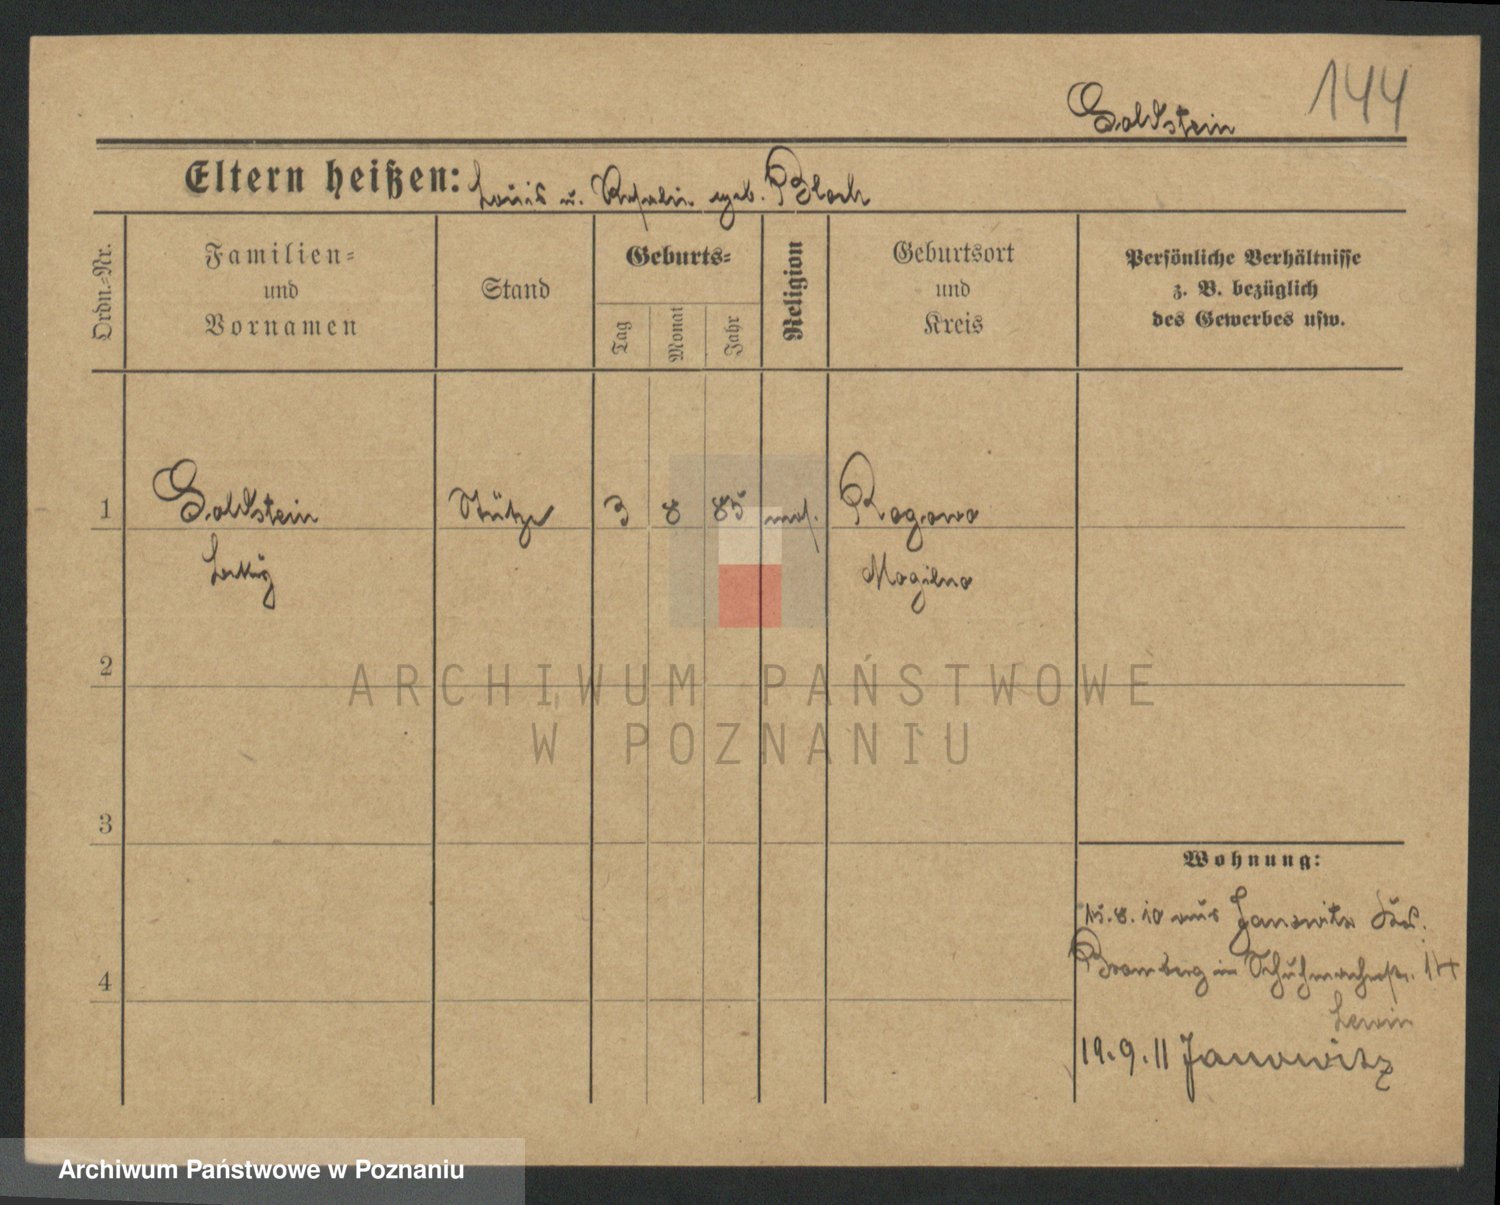 144
Goldstein
Eltern heißen: Louis u. Rosalie geb. Bloch
Ordn.=Nr.
Familien=
und
Vornamen
Stand
Geburts=
Tag
Monat
Jahr
Religion
Geburtsort
und
Kreis
Persönliche Verhältnisse
z. B. bezüglich
des Gewerbes usw.
1 Goldstein Stütze 3 8 85 mos. Rogowo
Mogilno
2
ARCHIWUM PAŃSTWOWE
W POZNANIU
3
Wohnung:
15.8.10 aus Janowitz
Bromberg in Schuhmacherstr. 14
4
Lewin
19.9.11 Janowitz
Archiwum Państwowe w Poznaniu